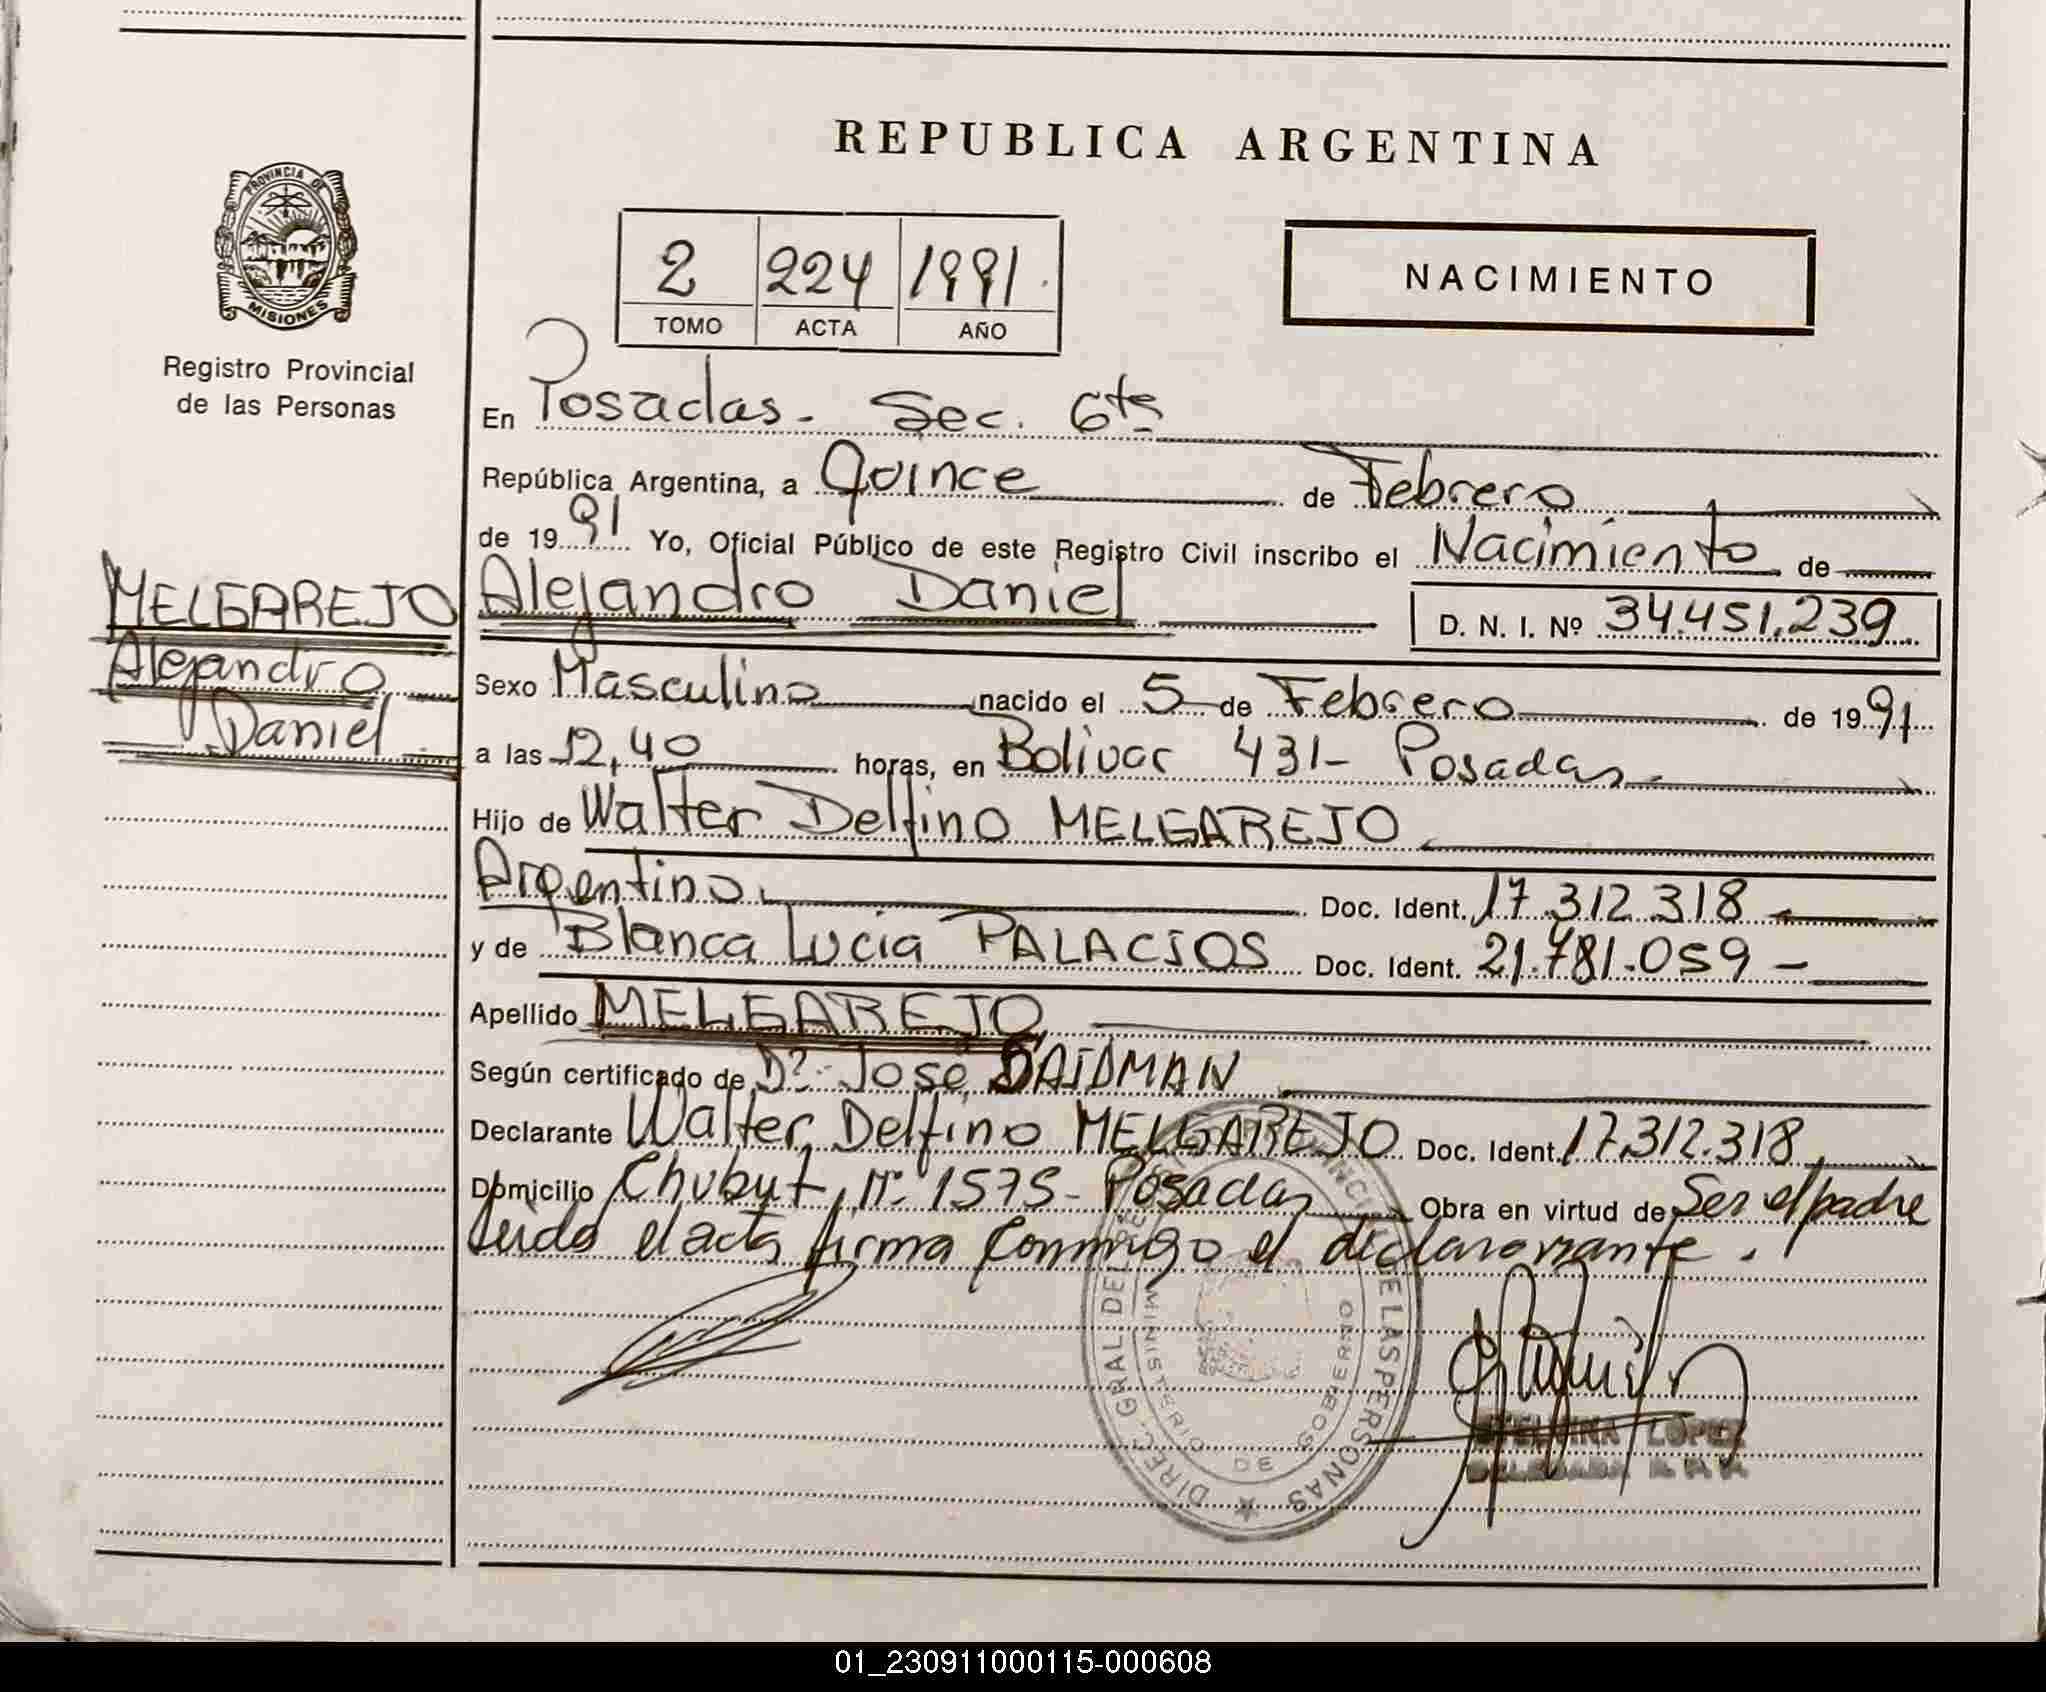 REPUBLICA ARGENTINA
PROVINCIA DE
MISIONES
Registro Provincial
de las Personas
2 224 1991.
TOMO ACTA AÑO
NACIMIENTO
En Posadas - Sec. 6ta
República Argentina, a Quince de Febrero
de 1991 Yo, Oficial Público de este Registro Civil inscribo el Nacimiento de
MELGAREJO
Alejandro
Daniel
Alejandro Daniel D. N. I. Nº 34.451.239
Sexo Masculino nacido el 5 de Febrero de 1991
a las 12,40 horas, en Bolivar 431 - Posadas
Hijo de Walter Delfino MELGAREJO
Argentino. Doc. Ident. 17.312.318 -
y de Blanca Lucia PALACIOS Doc. Ident. 21.781.059 -
Apellido MELGAREJO
Según certificado de Dº. José SAIDMAN
Declarante Walter Delfino MELGAREJO Doc. Ident. 17.312.318
Domicilio Chubut Nº 1575 - Posadas Obra en virtud de Ser el padre
Leida el acta firma conmigo el declararante.
DIREC. GRAL DEL REG. PROVINCIAL DE LAS PERSONAS
MINISTERIO DE GOBIERNO
ETELVINA LOPEZ
DELEGADA
01_230911000115-000608